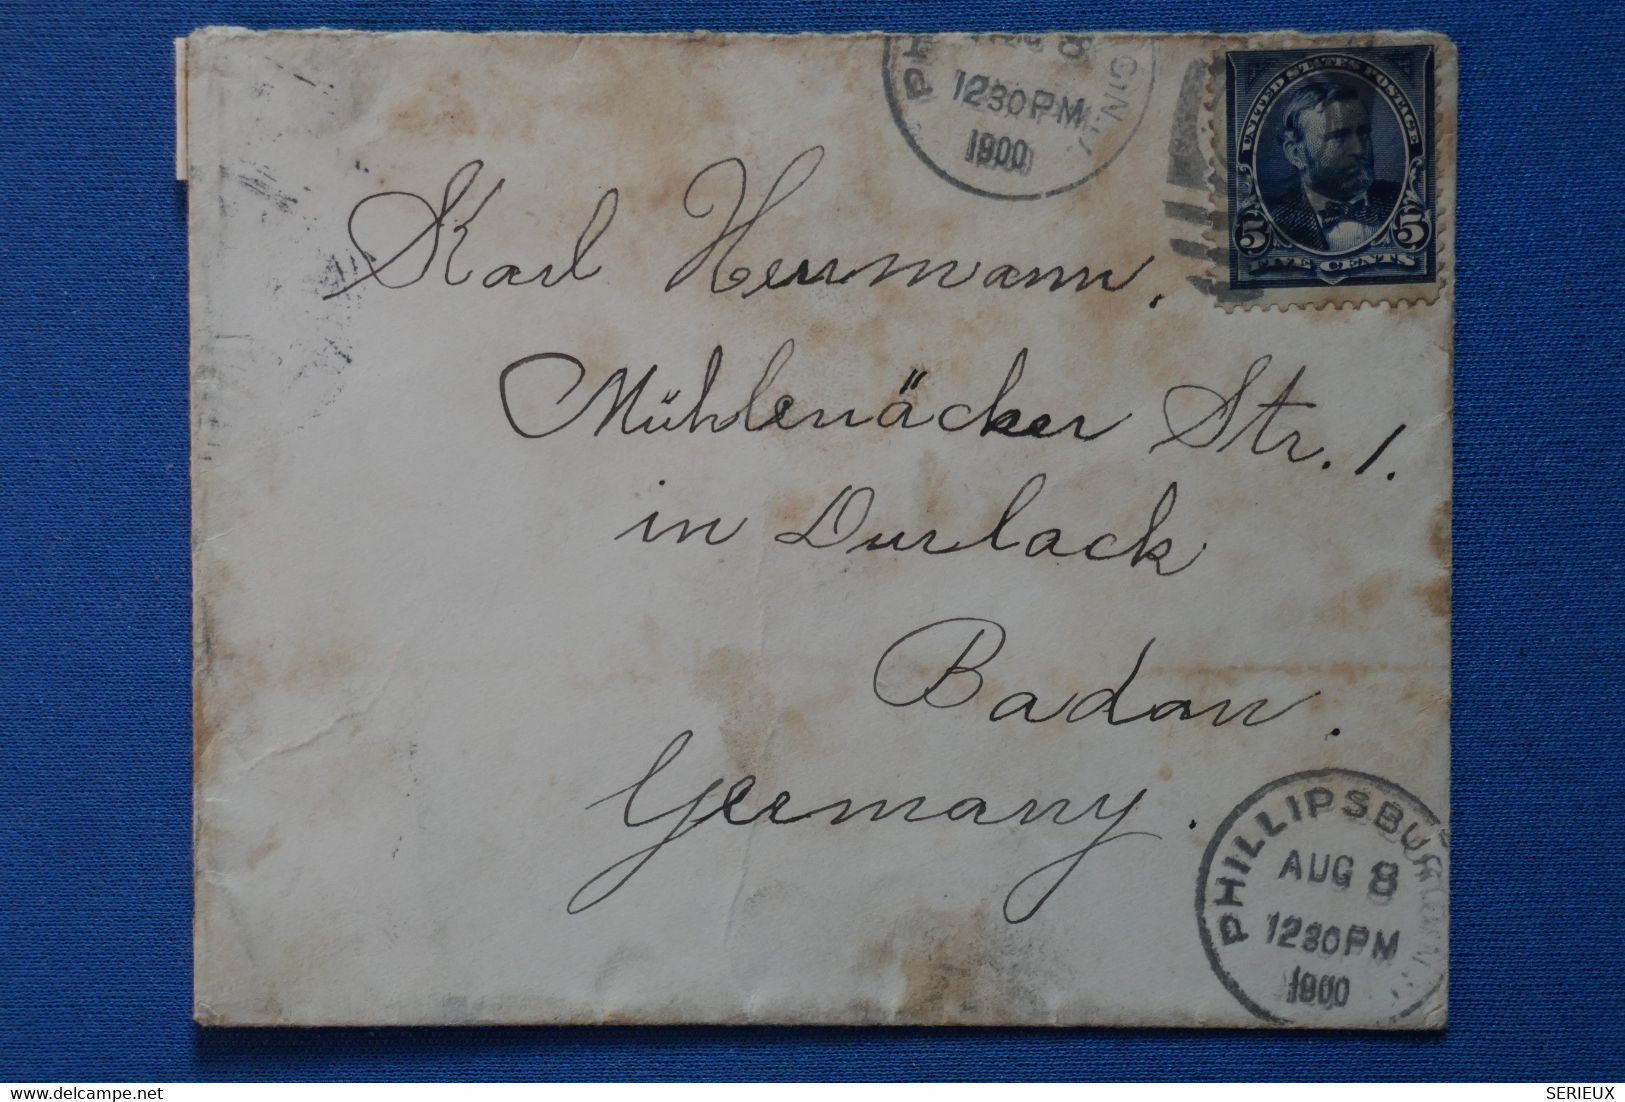 AUG 8
1230PM
1900
UNITED STATES POSTAGE
5 5
FIVE CENTS
Karl Herrmann.
Mühlenäcker Str. 1.
in Durlach
Baden.
Germany.
PHILLIPSBURG
AUG 8
1230PM
1900
delcampe.net
SERIEUX